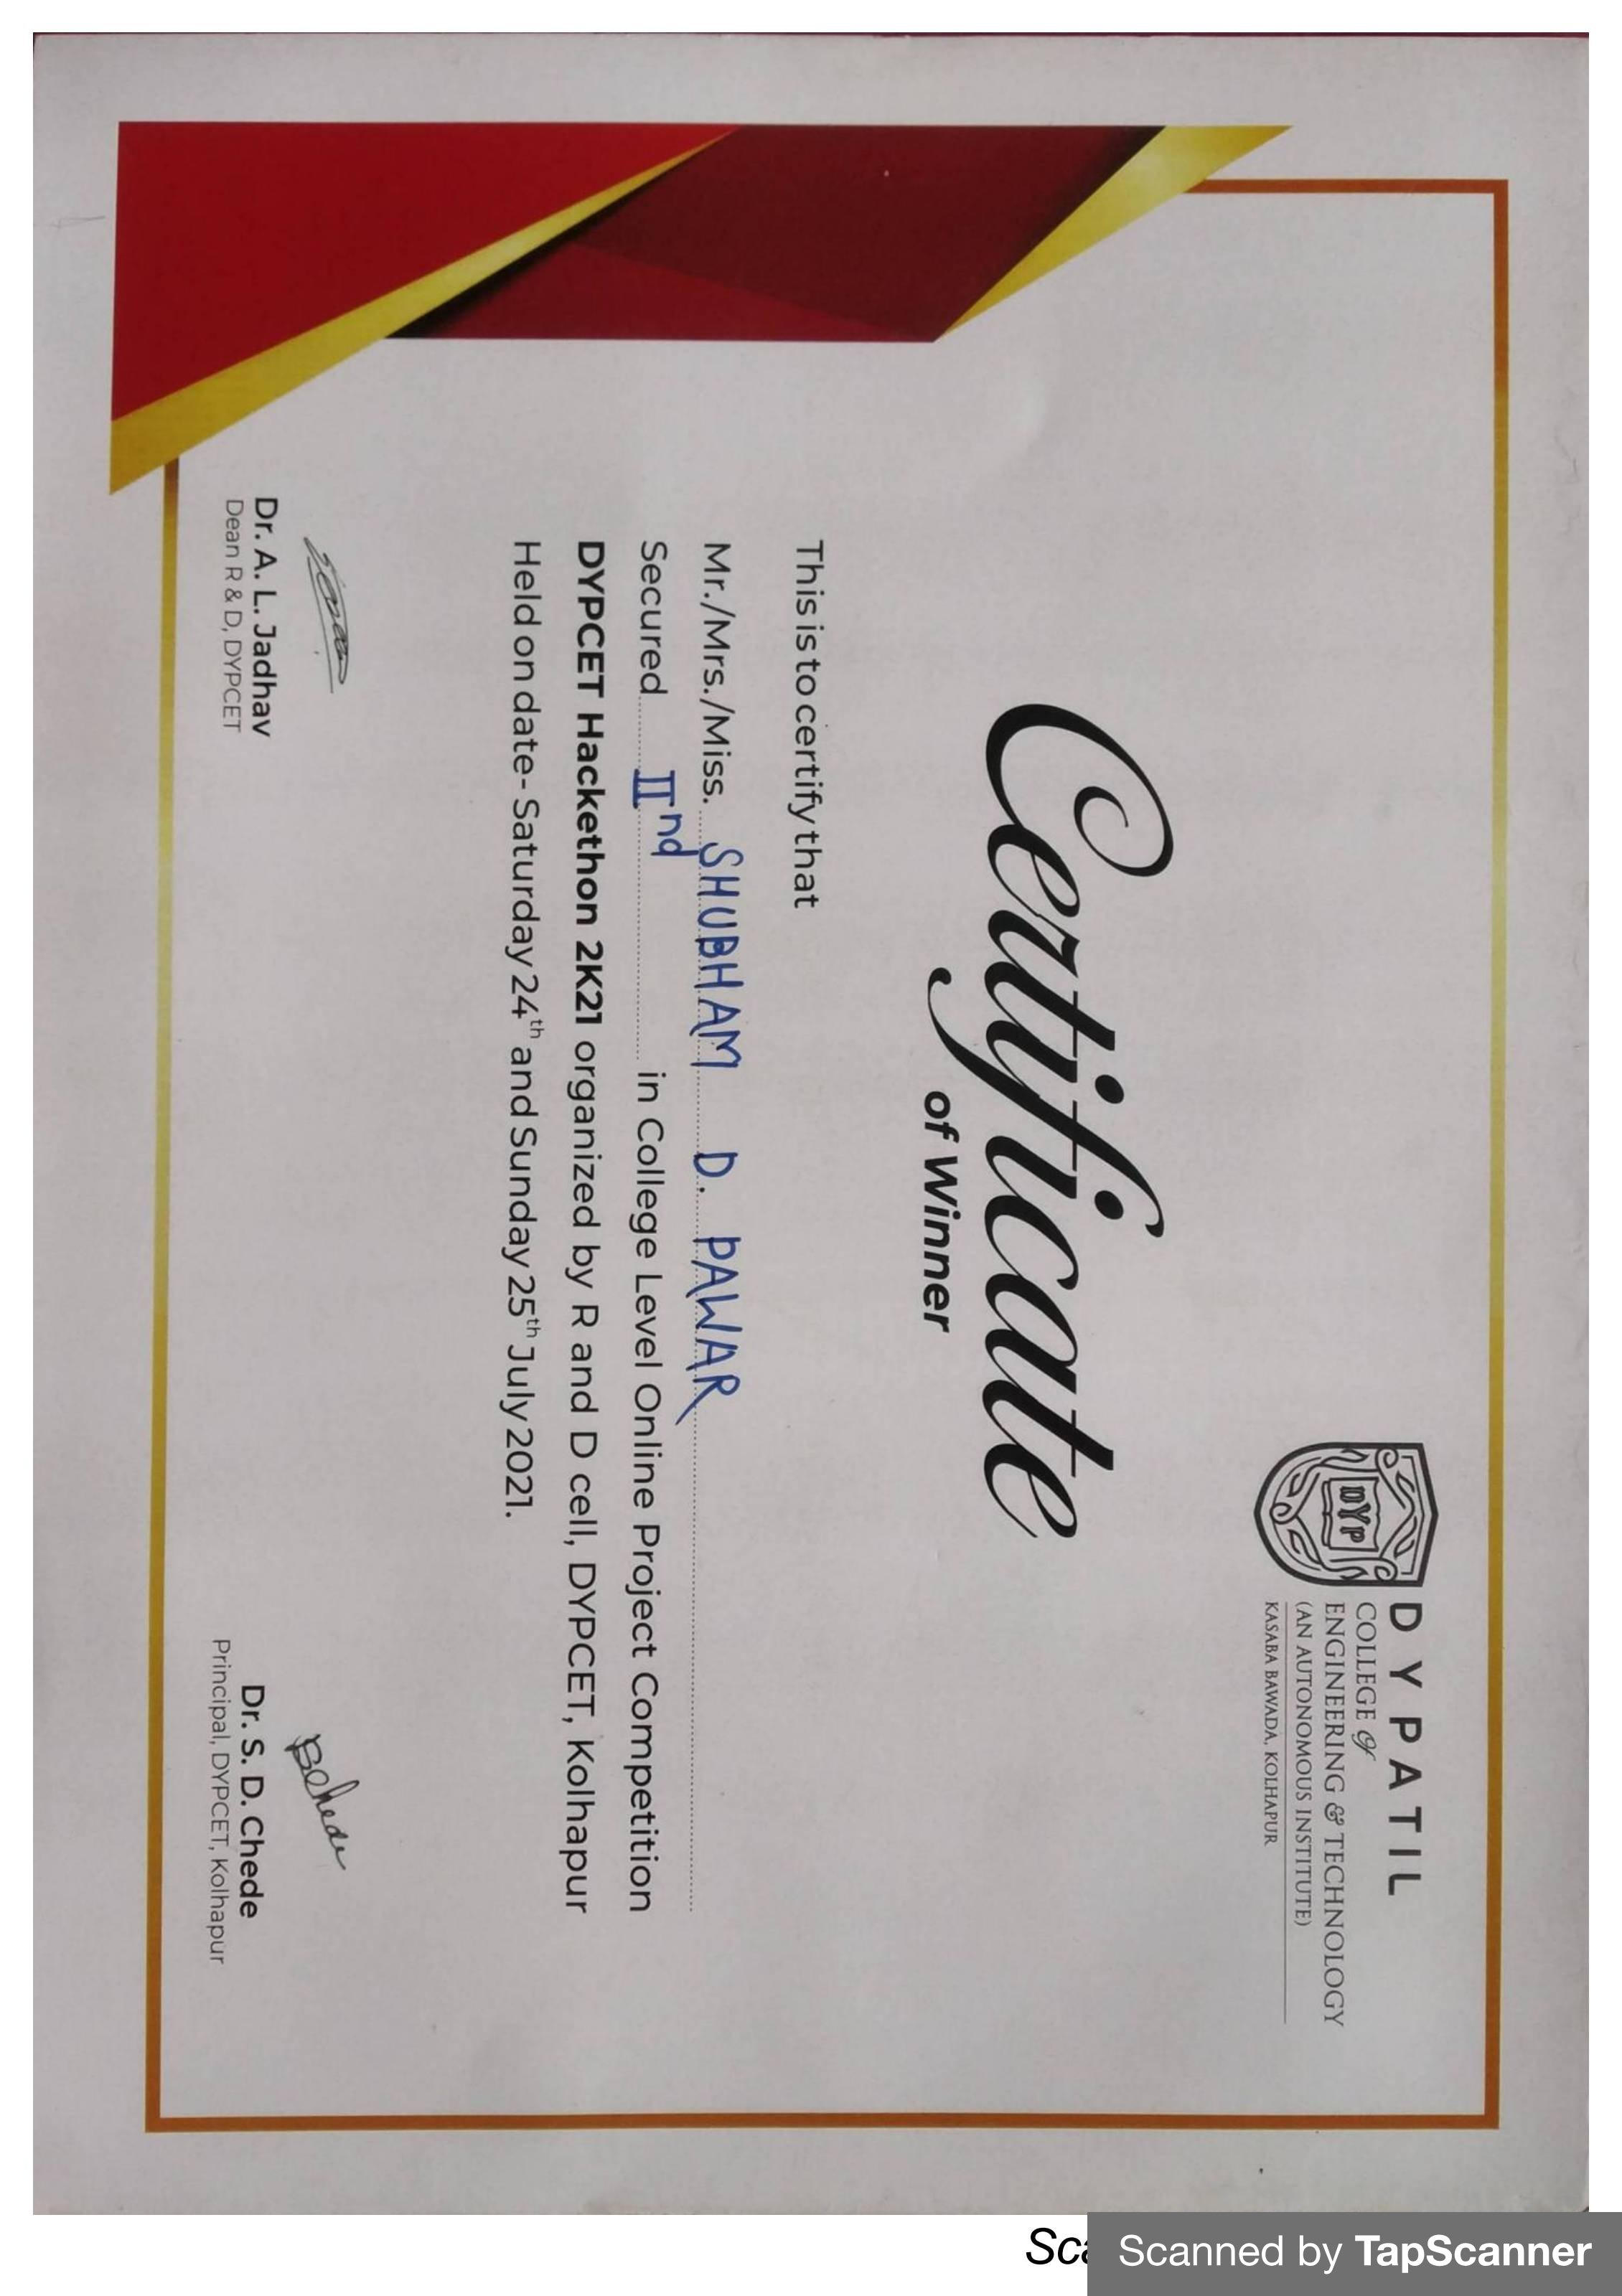 D Y P A T I L
COLLEGE of
ENGINEERING & TECHNOLOGY
(AN AUTONOMOUS INSTITUTE)
KASABA BAWADA, KOLHAPUR
DYP
Certificate
of Winner
This is to certify that
Mr./Mrs./Miss. SHUBHAM D. PAWAR
Secured IInd in College Level Online Project Competition
DYPCET Hackethon 2K21 organized by R and D cell, DYPCET, Kolhapur
Held on date- Saturday 24th and Sunday 25th July 2021.
Dr. A. L. Jadhav
Dean R & D, DYPCET
Dr. S. D. Chede
Principal, DYPCET, Kolhapur
Scanned by TapScanner